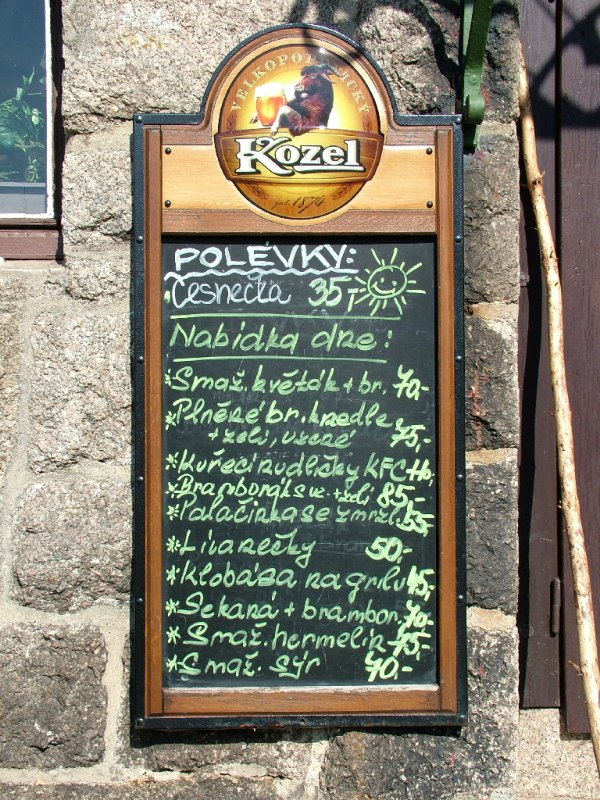 VELKOPOPOVICKÝ
Kozel
zal. 1874
POLÉVKY:
Česnečka 35,-
Nabídka dne:
* Smaž. květák + br. 70,-
* Plněné br. knedle
+ zelí, uzené 75,-
* Kuřecí nudličky KFC
* Bramborák s uz. + zelí 85,-
* Palačinka se zmrzl. 55,-
* Lívanečky 50,-
* Klobása na grilu 45,-
* Sekaná + brambor. 70,-
* Smaž. hermelín 75,-
* Smaž. sýr 70,-